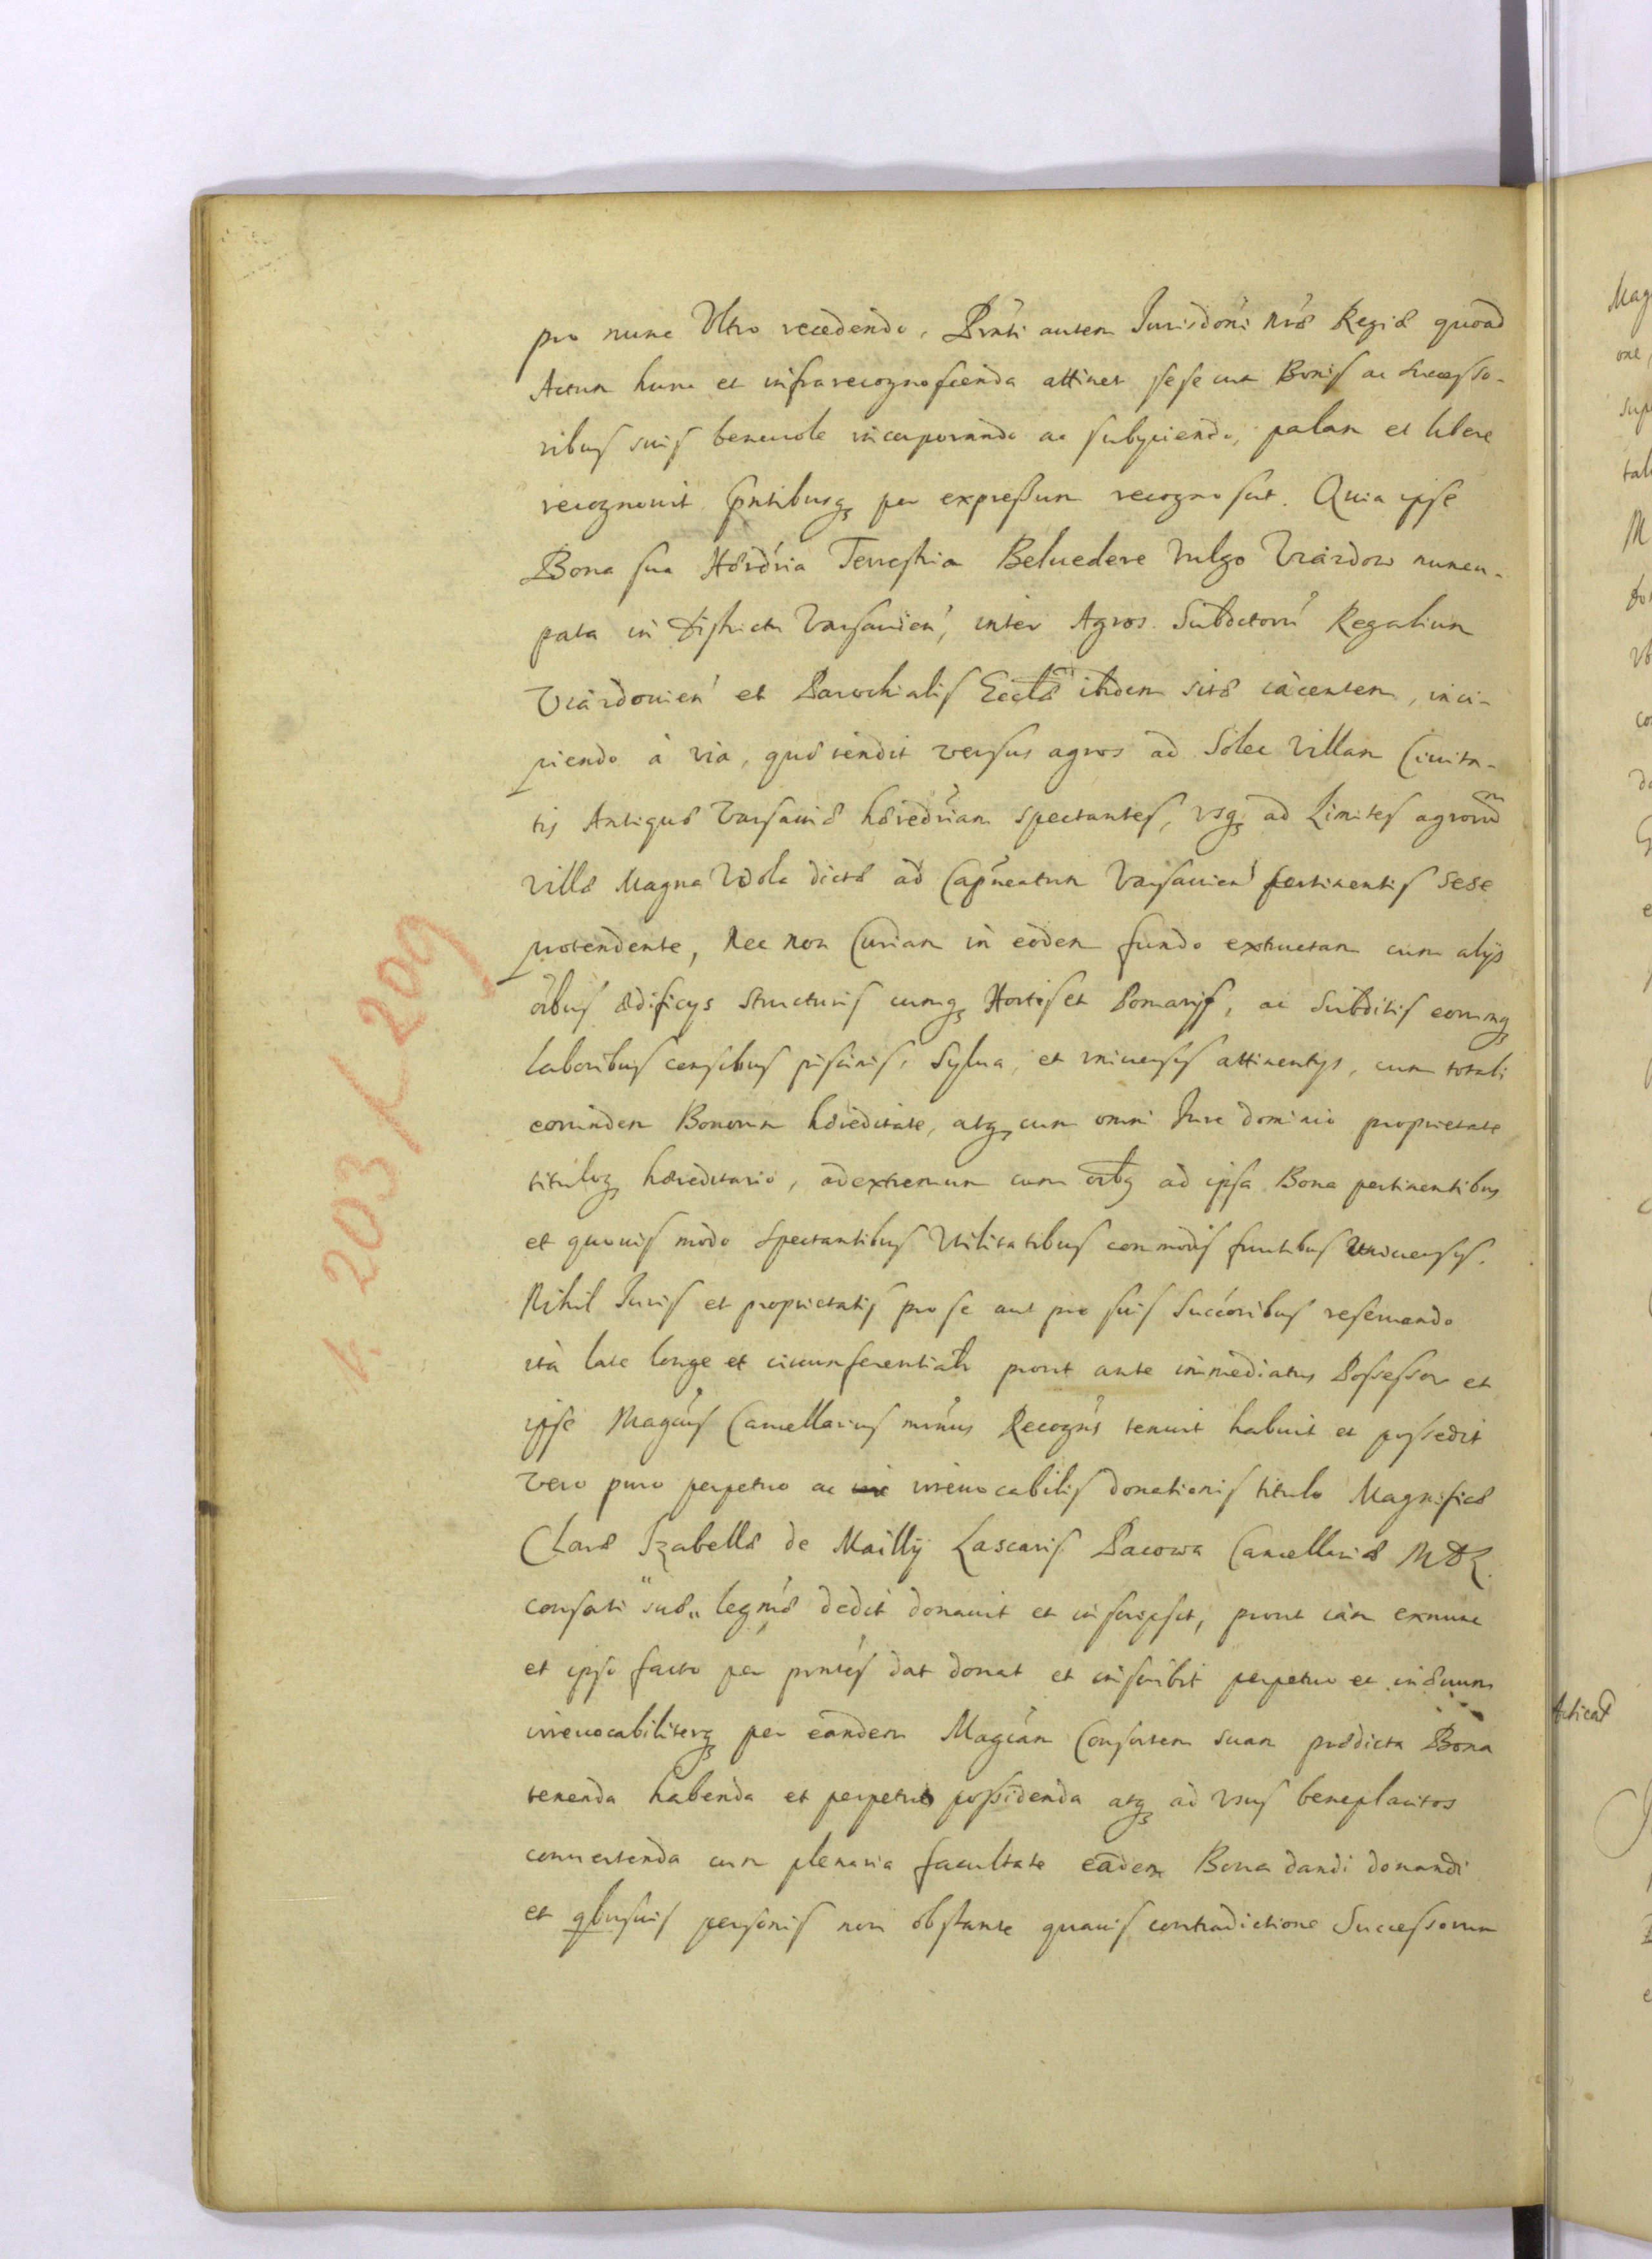 pro nunc Ultro recedendo, Prnti autem Jurisdoni nræ Regiæ quoad
Actum hunc et infrarecognoscenda attinet sese cum Bonis ac Successo-
ribus suis beneuole incorporando ac subyciendo, palam et libere
recognouit Pntibusq per expressum recognoscit. Quia ipse
Bona sua Hærdria Terrestria Beluedere Vulgo Uiazdow nuncu-
pata in Districtu Varsauien, inter Agros Subdctorū Regalium
Uiazdouien et Parochialis Eccłæ ibidem sitæ iacentem, inci-
piendo à via, quæ tendit versus agros ad Solec Villam Ciuita-
tis Antiquæ Varsauiæ hæredriam spectantes, vsq ad Limites agrorum
villæ Magna Wola dictæ ad Capneatum Varsauien pertinentis sese
protendente, Nec non Curiam in eodem fundo extructam cum alijs
oibus ædificys structuris cumq Hortis et Pomarijs, ac Subditis eorumq
laboribus censibus piscinis, Sylua, et vniuersis attinentys, cum totali
eorundem Bonorum hæreditate, atq cum omni Jure dominio proprietate
tituloq hæreditario, adextremum cum oibq ad ipsa Bona pertinentibus
et quouis modo spectantibus Utilitatibus commodis fructibus Uniuersis.
Nihil Juris et proprietatis pro se aut pro suis Succoribus reseruando
ità late longe et circumferentialr prout ante immediatus Possessor et
ipse Magcus Cancellarius mnus Recogns tenuit habuit et possedit
vero puro perpetuo ac irreuocabilis donationis titulo Magnificæ
Claræ Izabellæ de Mailly Lascaris Pacowa Cancellariæ MDL.
consorti suæ legmæ dedit donauit et inscripsit, prout iam exnunc
et ipso facto per prntes dat donat et inscribit perpetuo et in æuum
irreuocabiliterq per eandem Magcam Consortem suam prædicta Bona
tenenda habenda et perpetuo possidenda atq ad vsus beneplacitos
conuertenda cum plenaria facultate eadem Bona dandi donandi
et qbusuis personis non obstante quauis contradictione Successorum
k. 203 / 209